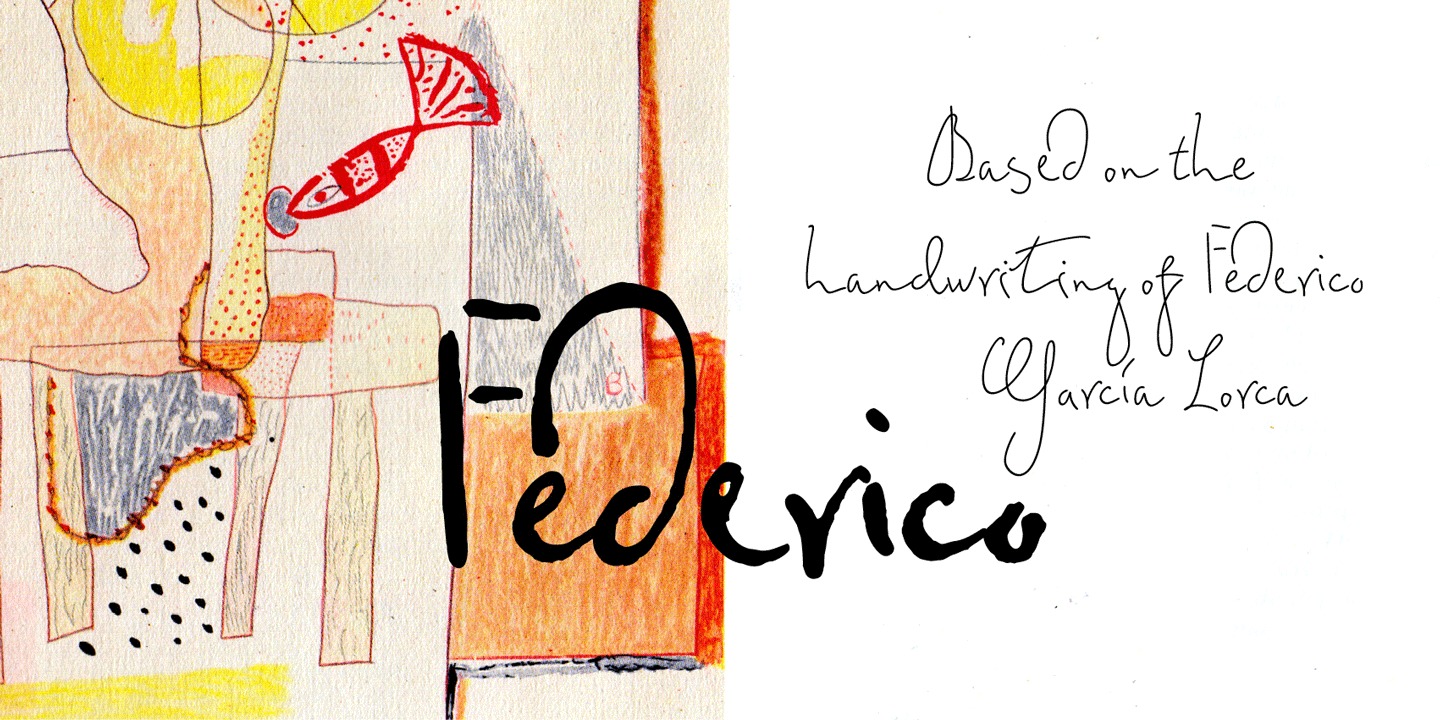 Based on the
handwriting of Federico
García Lorca
Federico
B